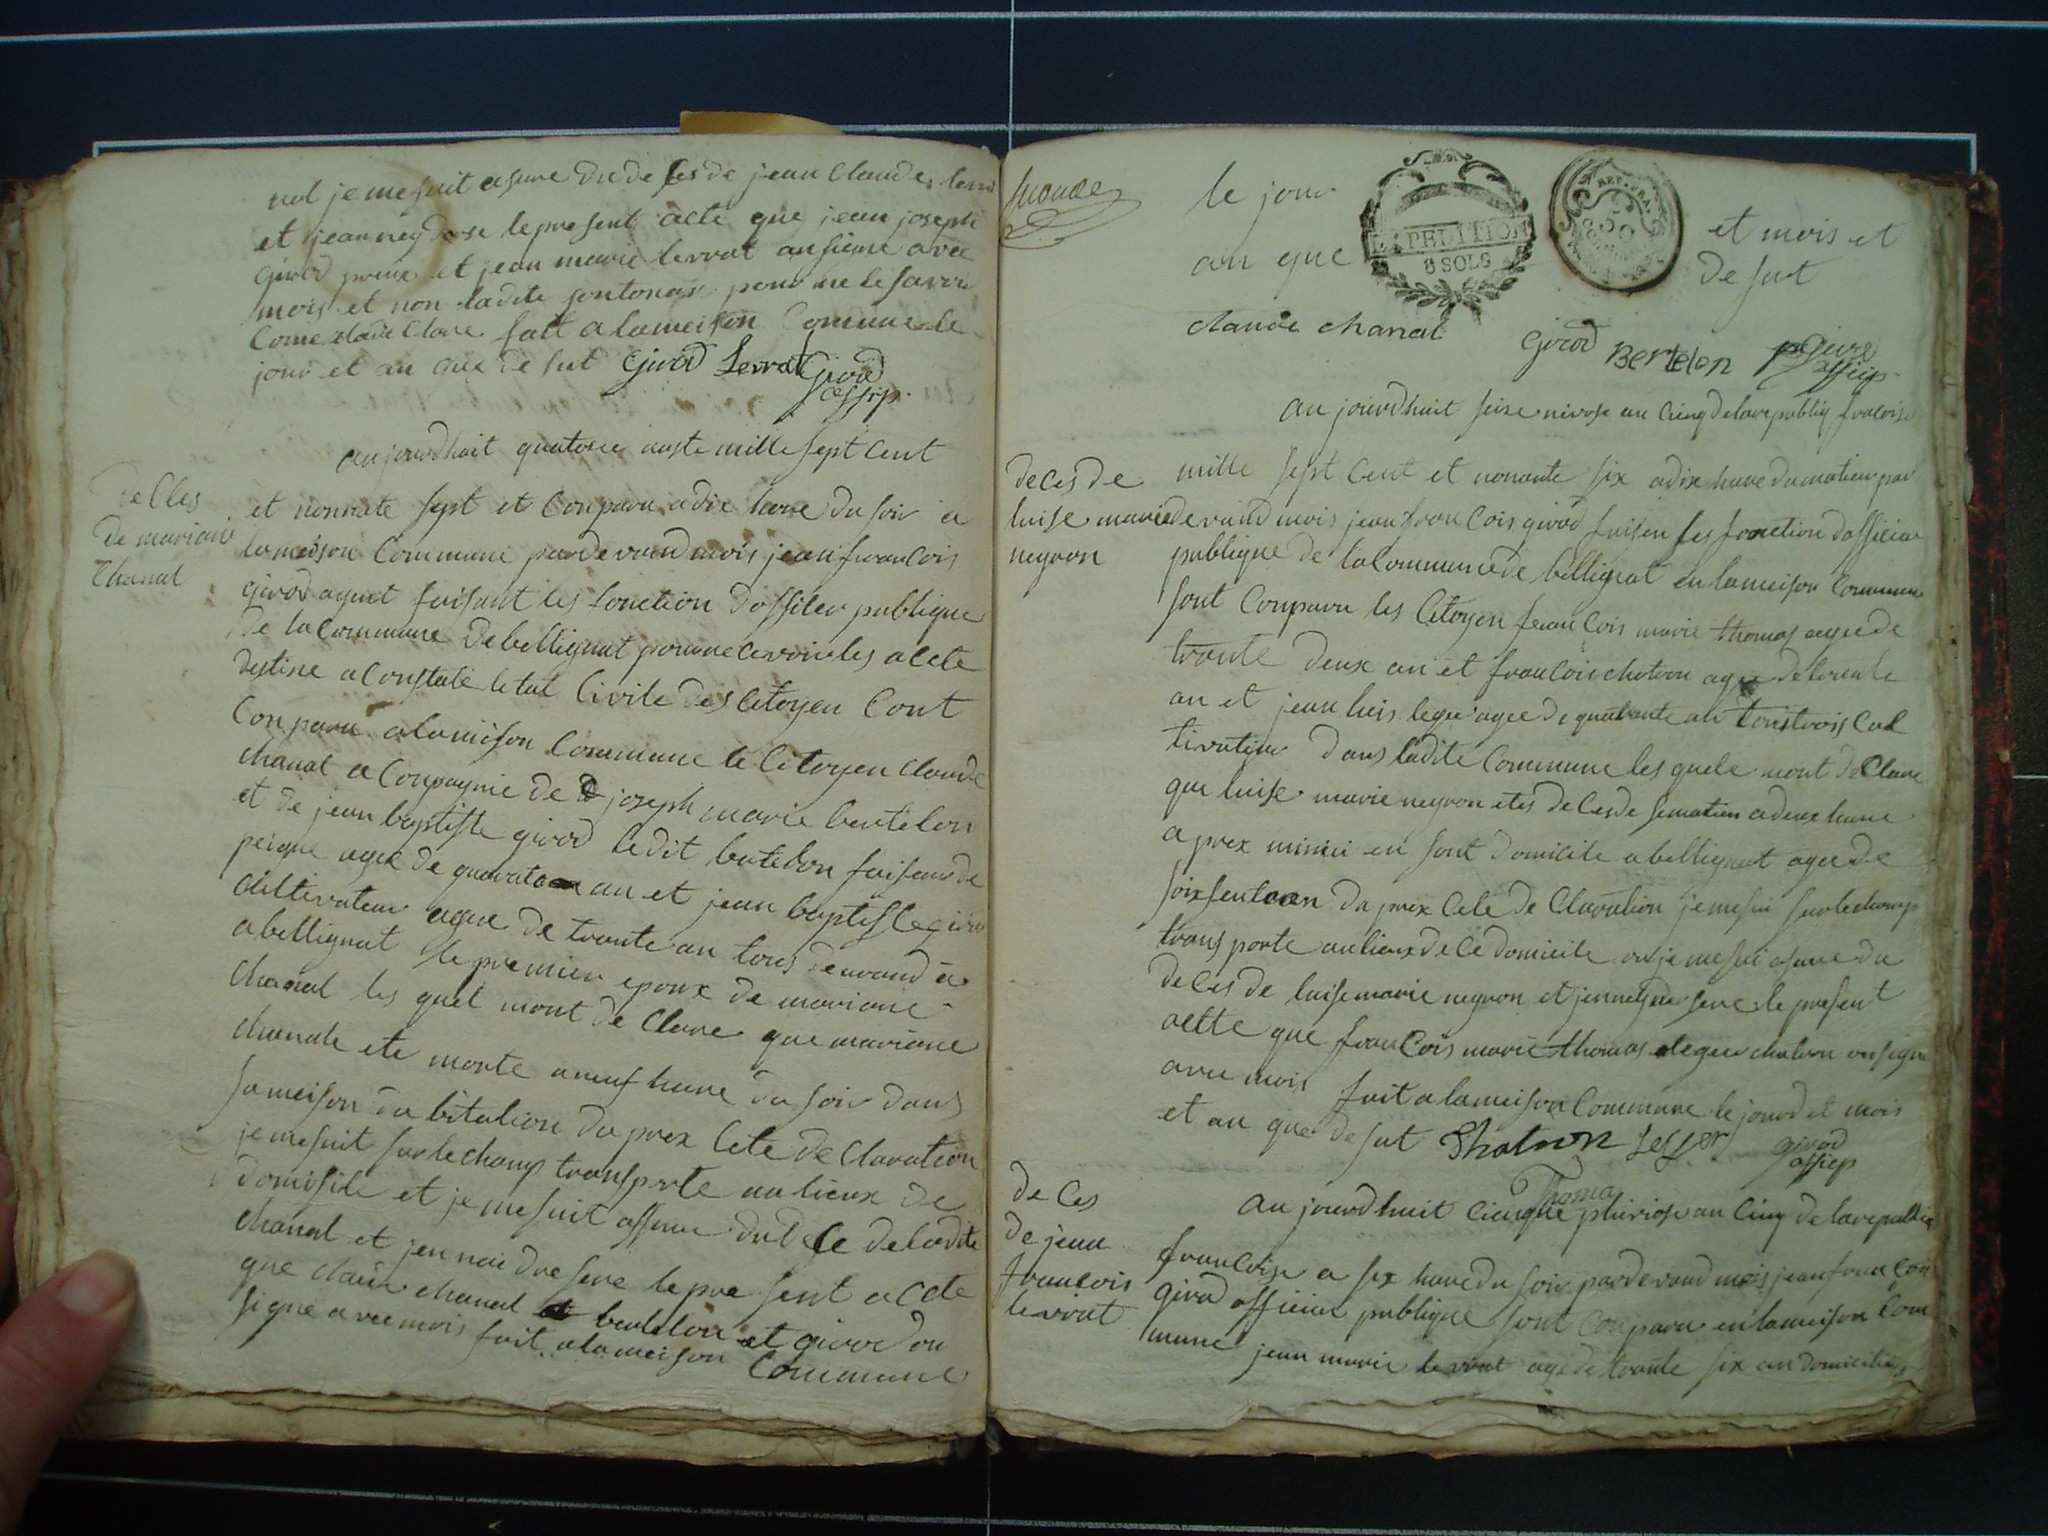 nol je me suit asure du de ces de jean Claude lerra
et jean ney drese le present acte que jean joseph
girod et jean marie lerrat ansiene avec
mois et non ladite pour ne le savoir
Come elaiia Clare fait a lameison Comune le
jour et an que de sut Girod Lerrat Girod
offisp.
au jourdhuit quatorse auste mille sept Cent
de Ces
de mariane
Chanal
et nonante sept et Conparu a dix heure du soir a
lameison Commune pardevand mois jean francois
girod agent faisant les fonction d'offiler publique
de la Commune de bellignat poure cevoir les acte
destine a Constate letat Civile des Citoyen Cont
Conparu a lameison Commune le Citoyen claude
chanal a Conpagnie de joseph marie bertelon
et de jean baptiste girod ledit bertelon faiseur de
peigne agee de quarante an et jean baptiste giro
cultivateur agee de trante an tous demeurand a
abellignat le premier epoux de mariane
chanal les quel mont de Clare que mariane
chanale ete morte a neuf heure du soir dans
sameison da bitalion da prex Cete de Claration
je mesuit sur le champ transporte au lieux de
domisile et je me suit assure du de Ce de ladite
chanal et jen nai drese le present acte
que claude chanal et bertelon et girod on
signe avec mois fait a lameison Commune
le jour et mois et
an que de sut
EXPEDITION
8 SOLS
REP. FRA.
50
claude chanal Girod Bertelon Girod
offisip.
au jourdhuit seise nivose an Cinq de larepubliq fracoise
deces de
luise marie
neyron
mille sept Cent et nonante six a dix heure du matien par
devand mois jean francois girod faisen les fonction doffisier
publique de la Commune de bellignat en lameison Commune
sont Conparu les Citoyen francois marie thomas agee de
trante deux an et francois chatron agee de trente
an et jean luis legee agee de quarante an tous trois Cul
tivateur dans ladite Commune les quele mont de Clare
que luise marie neyron etes de Cesde sematien a deux heure
a prex minui en sont domicile abellignat agee de
soixsente an da prex Cete de Claralion je me sui sur le champ
trans porte au lieux de Ce domicile ou je me sui asure du
de Ces de luise marie neyron et jen ney drese le present
actte que francois marie thomas legee chatron on signe
avec mois fait a lameison Commune le jourd et mois
et an que de sut Shatron Leger girod
offisp
Thoma
de Ces
de jean
francois
levrat
au jourdhuit Cienque pluviose an Cinq de larepublic
francoise a six heure du soir pardevand mois jean francois
girod offisier publique sont Conparu en lameison Com
mune jean marie levrat age de trante six an domicilies